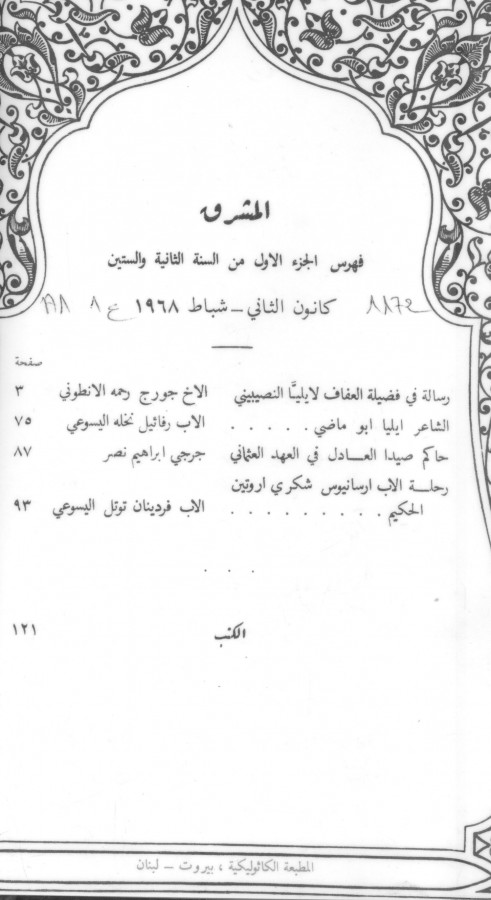 المشرق
فهرس الجزء الاول من السنة الثانية والستين
كانون الثاني - شباط ١٩٦٨
صفحة
رسالة في فضيلة العفاف لايليّا النصيبيني الاخ جورج رحمه الانطوني ٣
الشاعر ايليا ابو ماضي . . . . . الاب رفائيل نخله اليسوعي ٧٥
حاكم صيدا العادل في العهد العثماني جرجي ابراهيم نصر ٨٧
رحلة الاب ارسانيوس شكري اروتين
الحكيم . . . . . . . . . الاب فردينان توتل اليسوعي ٩٣
. . .
الكتب ١٢١
المطبعة الكاثوليكية ، بيروت - لبنان